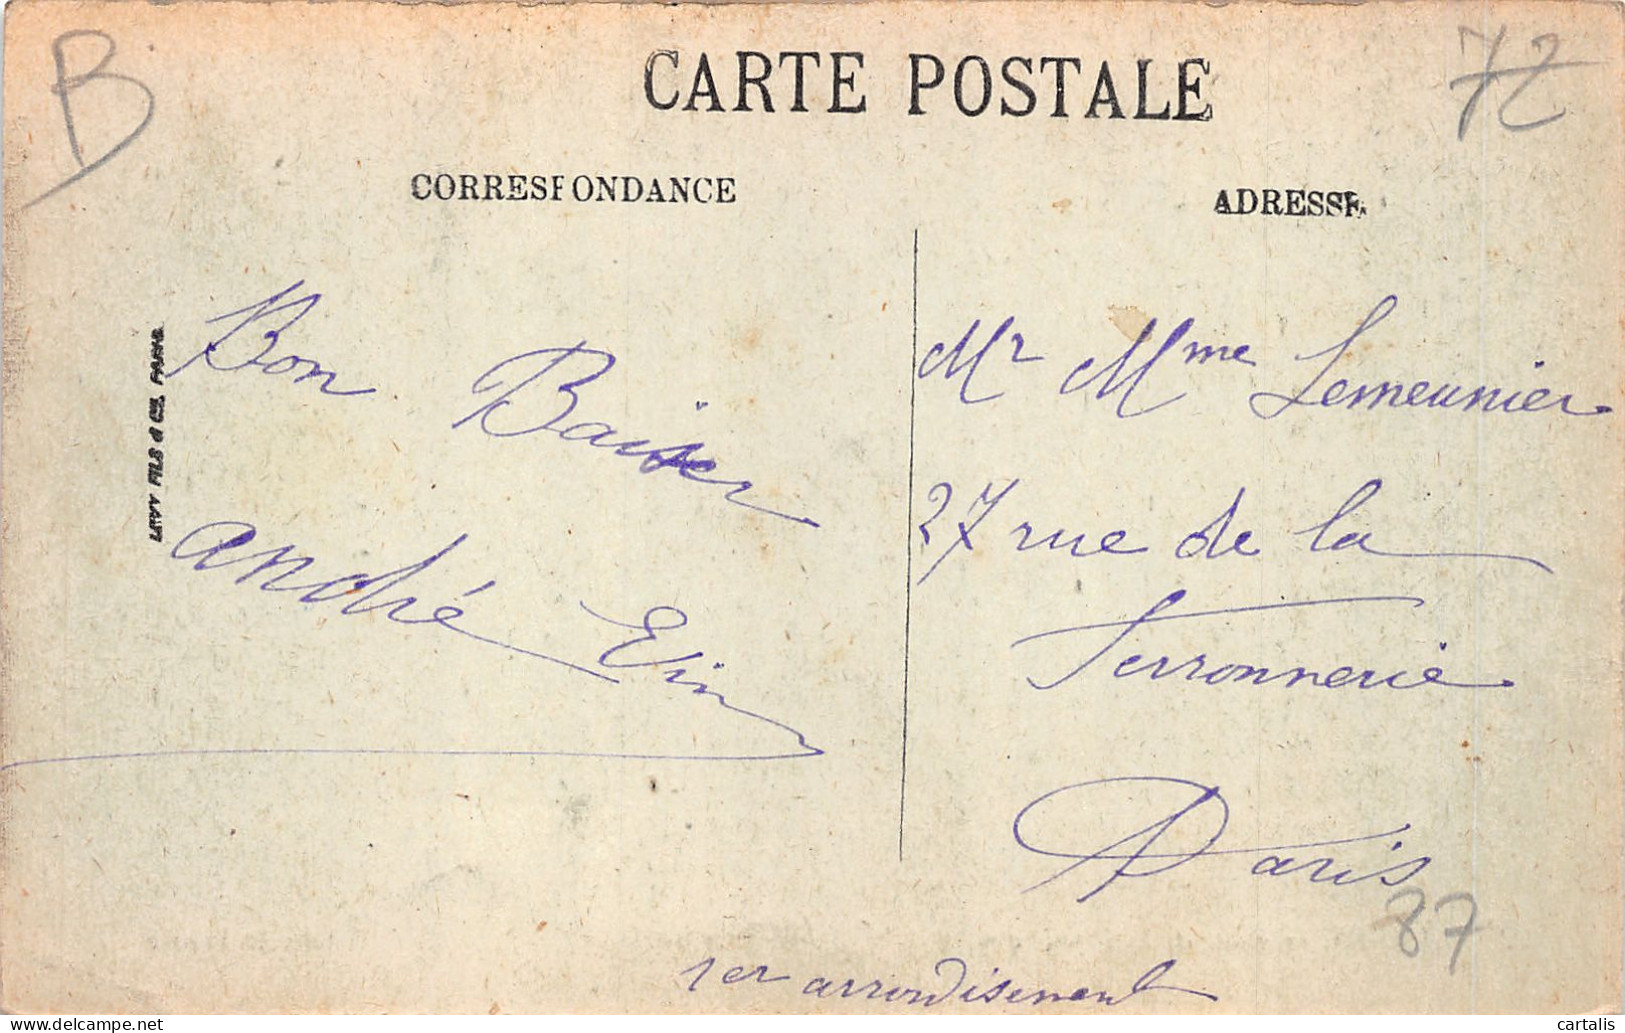 CARTE POSTALE
CORRESPONDANCE
ADRESSE
B
72
LEVY FILS & CIE, PARIS
Bon Baiser
André Elin
Mr Mme Lemeunier
27 rue de la
Ferronnerie
Paris
87
1er arrondisement
www.delcampe.net
cartalis